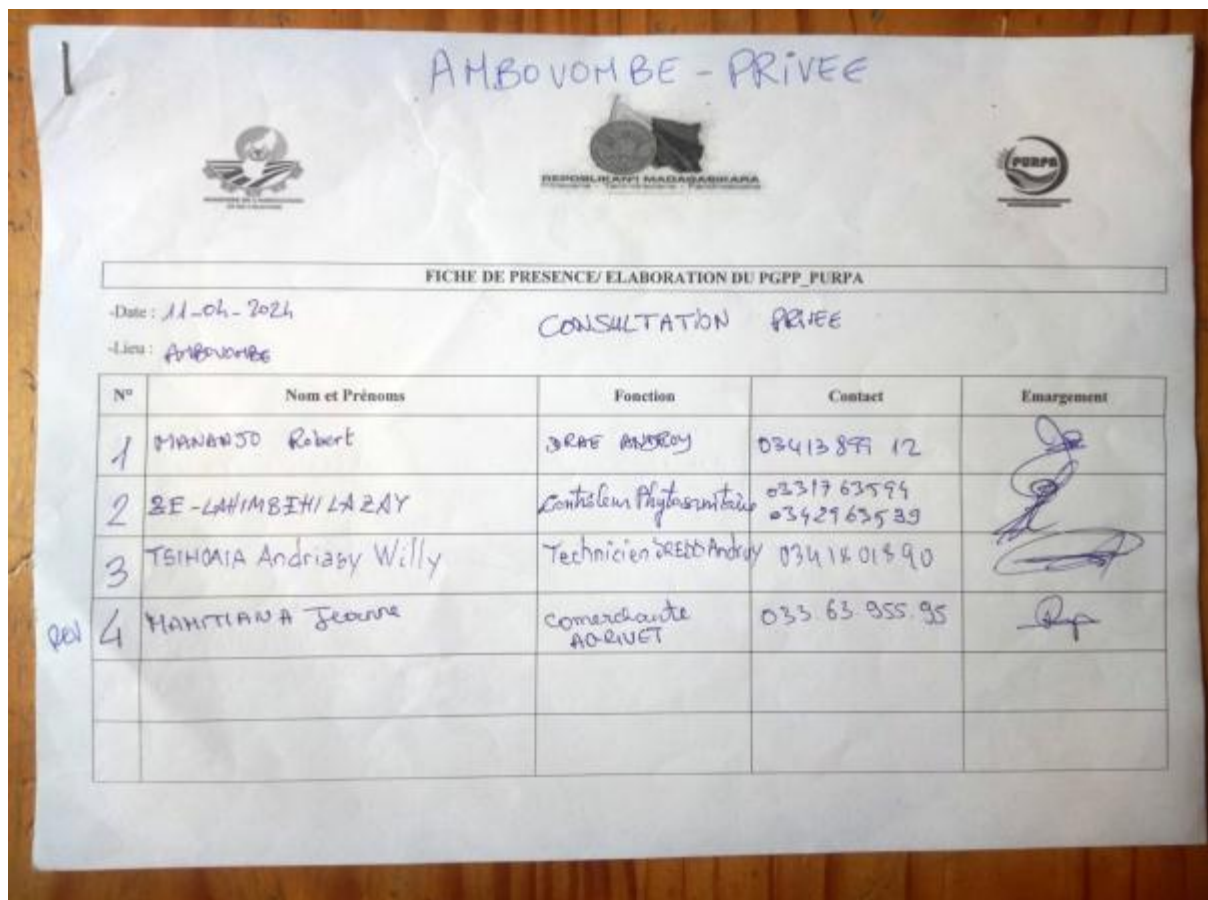 AMBOVOMBE - PRiVEE
REPOBLIKAN'I MADAGASIKARA
PURPA
FICHE DE PRESENCE/ ELABORATION DU PGPP_PURPA
-Date : 11-04-2024
CONSULTATION PRIVEE
-Lieu : AMBOVOMBE
N° Nom et Prénoms Fonction Contact Emargement
1 MANANJO Robert DRAE ANDROY 03413 899 12
2 ZE-LAHIMBEHI LAZAY Contrôleur Phytosanitaire 0331763594
0342963539
3 Andriasy Willy Technicien DREDD Androy 034 18 018 90
REV 4 MAHITIANA Jeanne Comerchante 033 63 955 95
AGRIVET